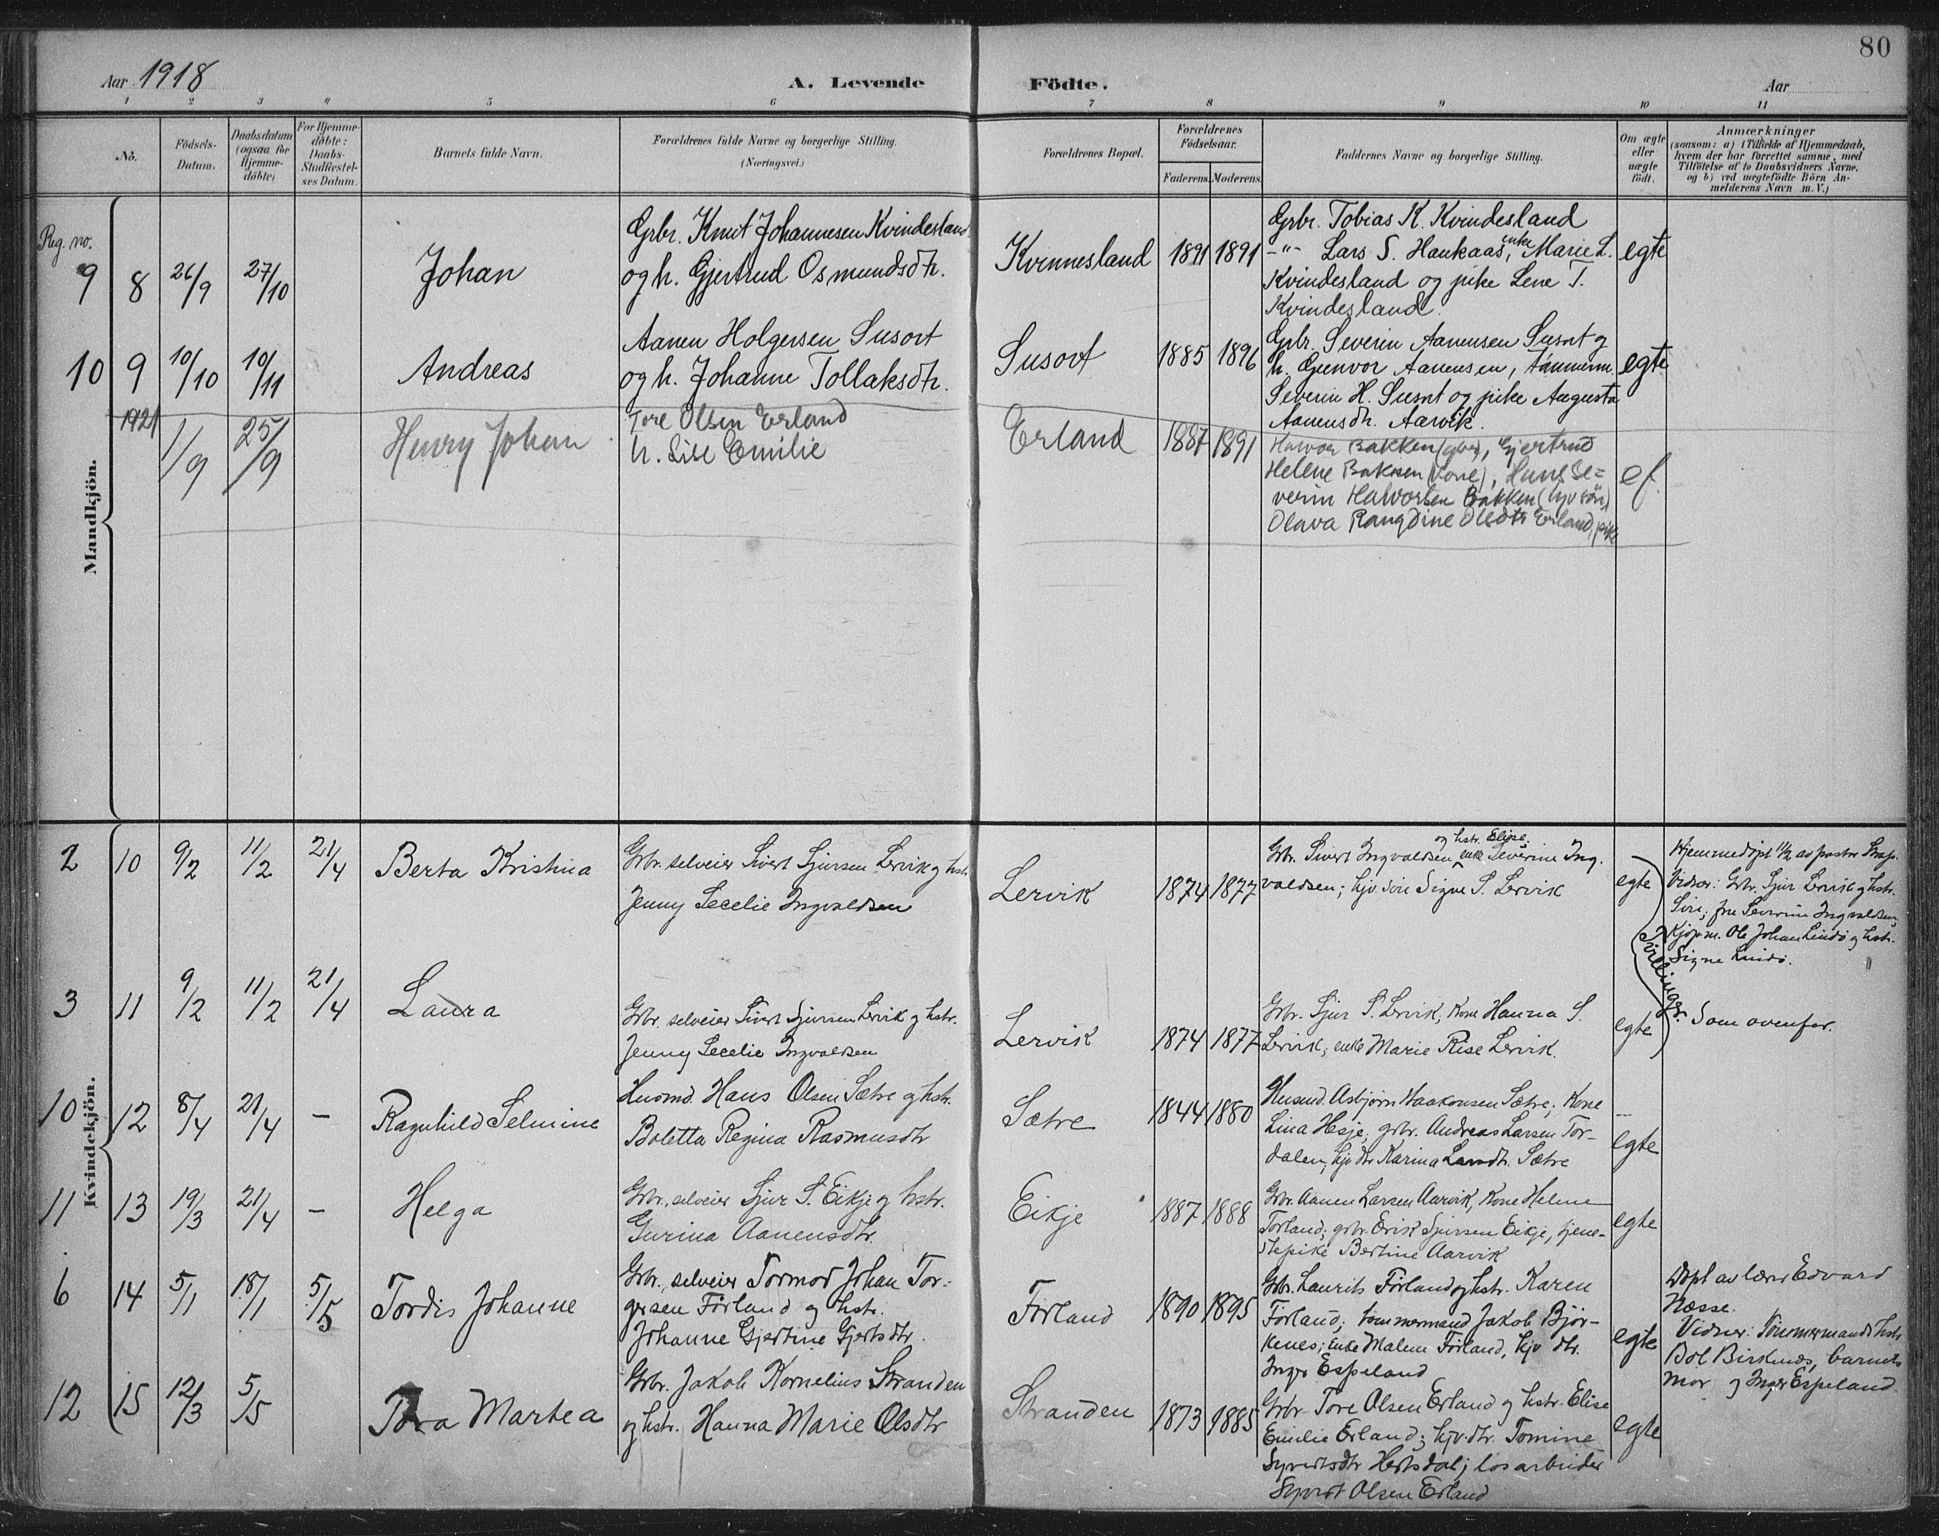 80
Aar 1918
A. Levende
Födte.
Aar
1 2 3 4 5 6 7 8 9 10 11
No.
Födsels-
Datum.
Daabsdatum
(ogsaa for
Hjemme-
döbte)
For Hjemme-
döbte:
Daabs-
Stadfæstel-
ses Datum.
Barnets fulde Navn.
Forældrenes fulde Navne og borgerlige Stilling.
(Næringsvei.)
Forældrenes Bopæl.
Forældrenes
Födselsaar.
Faderens. Moderens.
Faddernes Navne og borgerlige Stilling.
Om ægte
eller
uægte
født.
Anmærkninger
(saasom: a) i Tilfælde af Hjemmedaab,
hvem der har forrettet samme, med
Tilföielse af to Daabsvidners Navne,
og b) ved uægtefödte Börn An-
melderens Navn m. V.)
Mandkjön.
Reg. no.
9 8 26/9 27/10
Johan
Grbr. Knut Johannesen Kvindesland
og h. Gjertrud Osmundsdtr.
Kvinnesland 1891 1891
Grbr. Tobias K. Kvindesland
-"- Lars S. Haukaas, enke Marie L.
Kvindesland og pike Lene T.
Kvindesland
egte
10 9 10/10 10/11
Andreas
Aanen Holgersen Susort
og h. Johanne Tollaksdtr.
Susort 1885 1896
Grbr. Severin Aanensen Susort og
h. Gunvor Aanensen, tömmerm.
Severin H. Susort og pike Augusta
Aanensdtr. Aarvik.
egte
1921 1/9 25/9
Henry Johan
Tore Olsen Erland
h. Lise Emilie
Erland 1887 1891
Halvor Bakken (gbr), Gjertrud
Helene Bakken (kone), Hans Se=
verin Halvorsen Bakken (hjv sön)
Olava Rangdine Olsdtr Erland, pike
ef.
Kvindekjön.
2 10 9/2 11/2 21/4
Berta Kristina
Grbr. selveier Sivert Sjursen Lervik og hstr.
Jenny Secelie Ingvaldsen
Lervik 1874 1877
og hstr. Elise;
Grbr. Sivert Ingvaldsen enke Severine Ing.
valdsen; hjv. Signe S. Lervik
egte
Tvillinger.
Hjemmedöpt 11/2 av pastor
Vidner: Grbr. Sjur Lervik og hstr.
Siri; fru Severine Ingvaldsen,
Kjöpm. Ole Johan Lindö og hstr.
Signe Lindö.
3 11 9/2 11/2 21/4
Laura
Grbr. selveier Sivert Sjursen Lervik og hstr.
Jenny Secelie Ingvaldsen
Lervik 1874 1877
Grbr. Sjur S. Lervik, Kone Hanna S.
Lervik; enke Marie Rise Lervik.
egte
Som ovenfor.
10 12 8/4 21/4 -
Ragnhild Selmine
Husmd. Hans Olsen Sætre og hstr.
Boletta Regina Rasmusdtr
Sætre 1844 1880
Husmd. Asbjørn Haakonsen Sætre, Kone
Lina Hesje; grbr. Andreas Larsen Tor-
dalen, hjv dtr Karina Sætre
egte
11 13 19/3 21/4 -
Helga
Grbr. selveier Sjur S. Eikje og hstr.
Gurina Aanensdtr.
Eikje 1887 1888
Grbr. Aanen Larsen Aarvik, Kone Helene
Førland; grbr. Erik Sjursen Eikje, tjene-
stepike Bertine Aarvik
egte
6 14 5/1 18/1 5/5
Tordis Johanne
Grbr. selveier Tormod Johan Tor-
gersen Førland og hstr.
Johanne Gjertine Gjertsdtr.
Førland 1890 1895
Grbr. Laurits Førland og hstr. Karen
Førland; tømmermand Jakob Bjør-
kenes; enke Malene Førland, hjv dtr.
Inger Espeland
egte
Döpt av lærer Edvard
Næsse.
Vidner: Tömmermands hstr
Bol Birkenes, barnets
mor og Inger Espeland
12 15 12/3 5/5
Tora Martea
Grbr. Jakob Kornelius Stranden
og hstr. Hanna Marie Olsdtr
Stranden 1873 1885
Grbr. Tore Olsen Erland og hstr. Elise
Emilie Erland; hjv. dtr. Tomine
Syvertsdtr Hertsdal; løsarbeider
Syvert Olsen Erland
egte